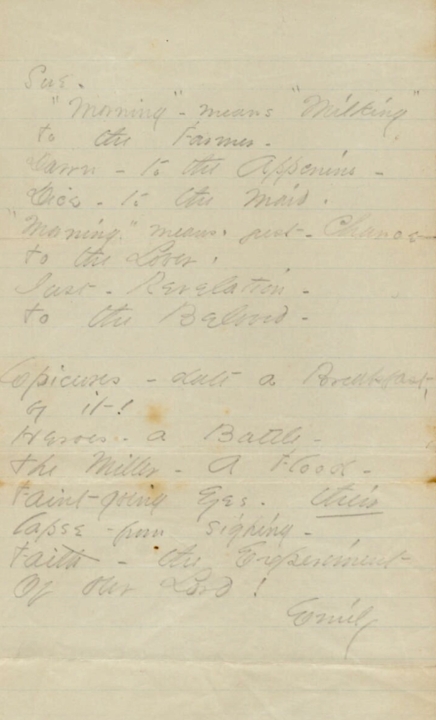 Sue.
"Morning" - means "Milking"
to the Farmer -
Dawn - to the Apennine -
Dice - to the Maid.
"Morning" means - just - Chance
to the Lover.
Just - Revelation -
To the Beloved -
Epicures - date a Breakfast,
by it!
Heroes - a Battle -
The Miller - A Flood -
Faint-going Eyes - their
Lapse - from sighing -
Faith - the Experiment
Of our Lord!
Emily